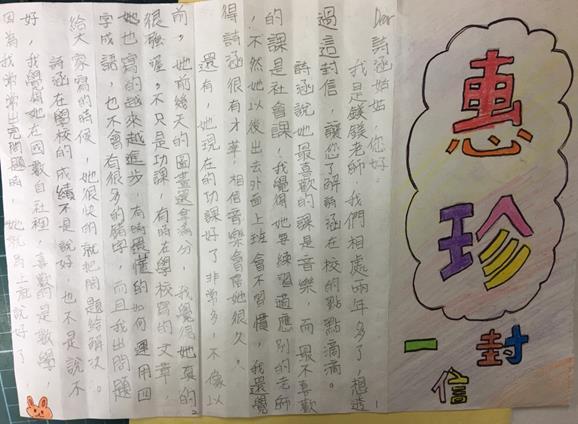 惠珍
一封信
Dear 詩涵姑姑，您好：
我是錢錢老師，我們相處兩年多了，想透
過這封信，讓您了解詩涵在校的點點滴滴。
詩涵說她最喜歡的課是音樂，而最不喜歡
的課是社會課，我覺得她要練習適應別的老師
，不然她以後出去外面上班會不習慣，我還覺
得詩涵很有才華，相信音樂會陪她很久。
還有，她現在的功課好了非常多，不像以
前，她前幾天的圖畫還拿滿分，我覺得她真的
很強，不只是功課，有時在學校寫的文章，
她也寫的越來越進步，有時還懂的如何運用四
字成語，也不會有很多的錯字，而且我出問題
給大家寫的時候，她很快的就把問題給解決。
詩涵在學校的成績不是說好，也不是說不
好，我覺得她在國數自社裡，喜歡的是數學，
因為我常常出完問題時，她就馬上就好了，